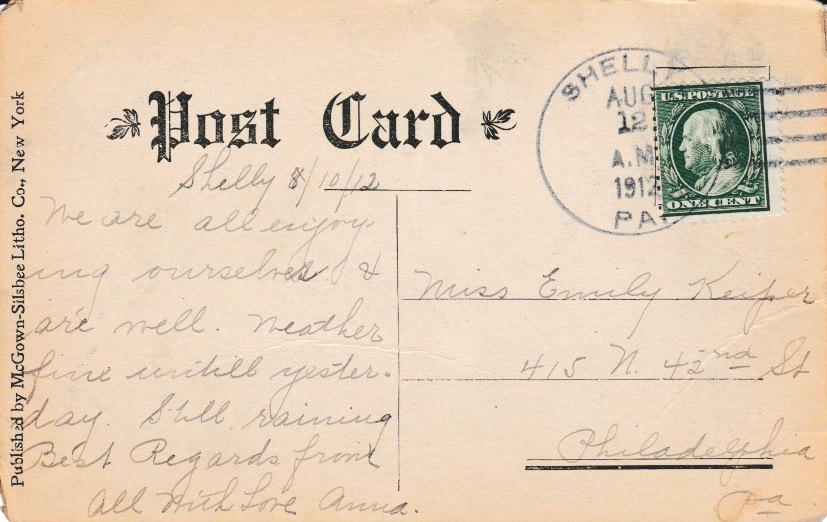 Post Card
SHELLY
AUG
12
A.M.
1912
PA.
U.S. POSTAGE
ONE CENT
Published by McGown-Silsbee Litho. Co., New York
Shelly 8/10/12
We are all enjoy
ing ourselves &
are well. Weather
fine untill yester-
day. Still raining
Best Regards from
all With Love Anna.
Miss Emily Keiper
415 N. 42nd St
Philadelphia
Pa